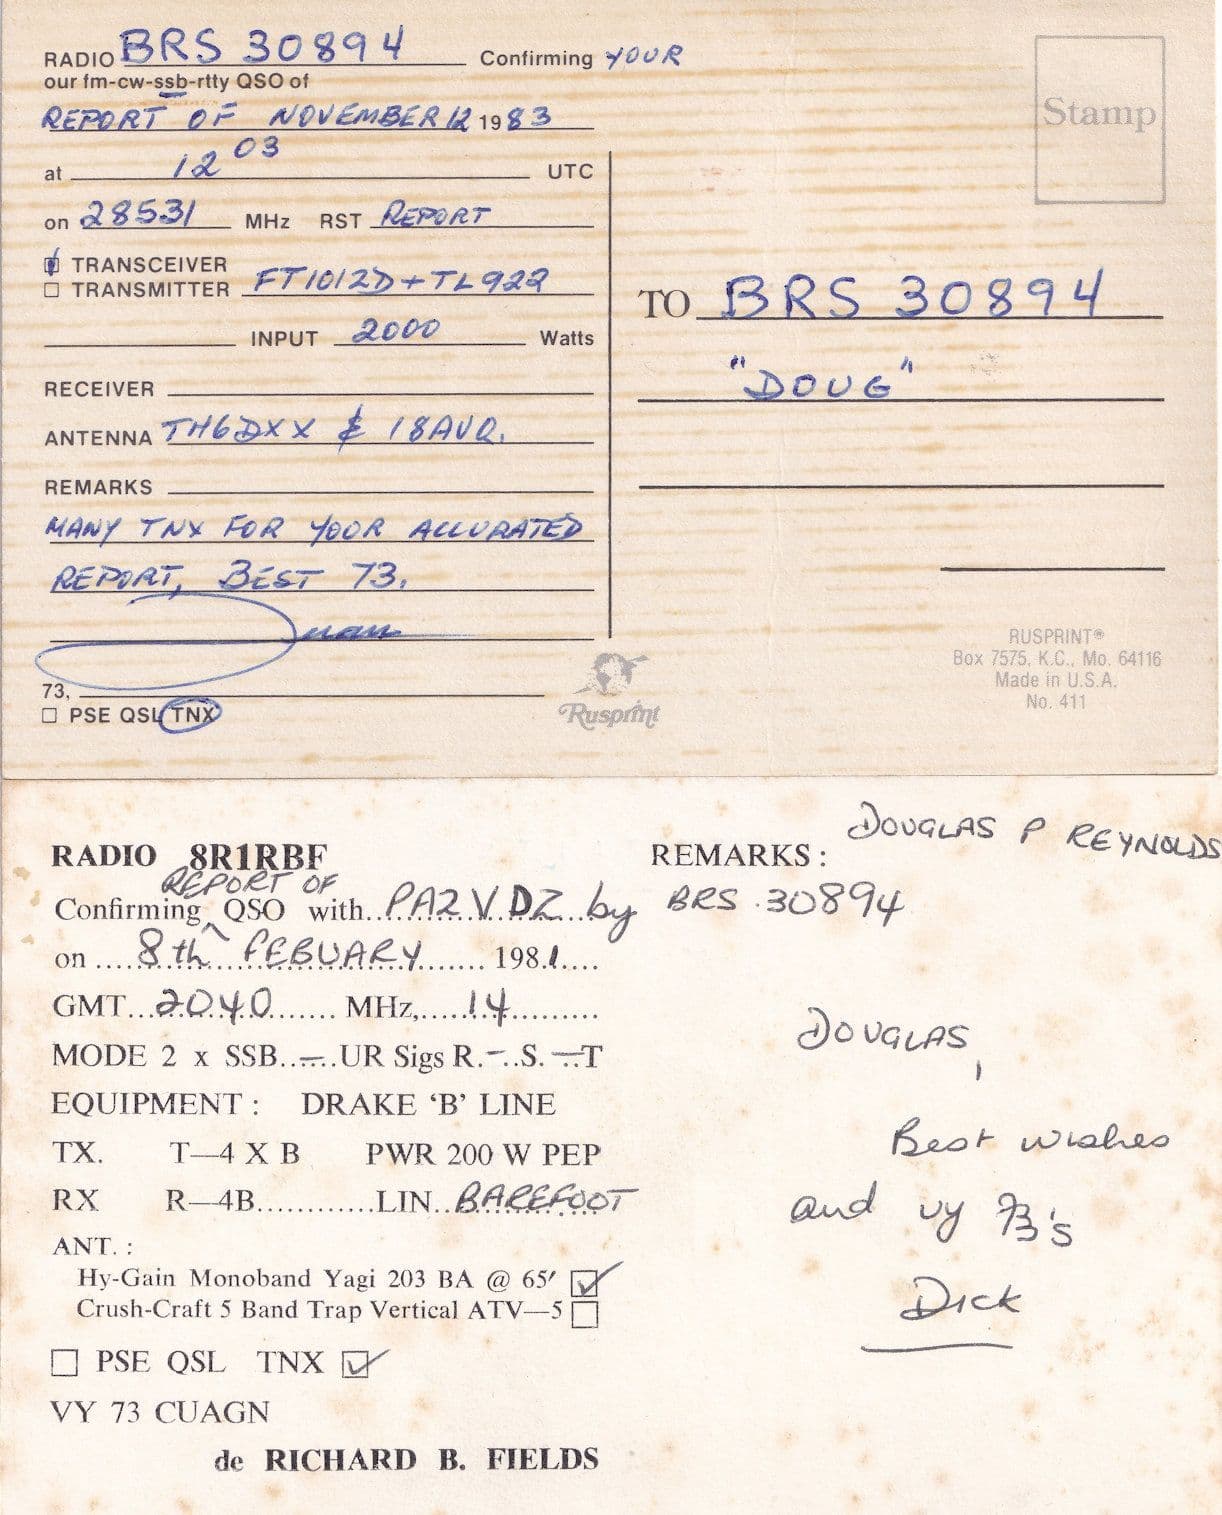 RADIO BRS 30894 Confirming YOUR
our fm-cw-ssb-rtty QSO of
REPORT OF NOVEMBER 12 1983
at 12 03 UTC
on 28531 MHz RST REPORT
TRANSCEIVER
TRANSMITTER FT101ZD + TL922
INPUT 2000 Watts
RECEIVER
ANTENNA TH6DXX & 18AVQ.
REMARKS
MANY TNX FOR YOUR ACCURATED
REPORT, BEST 73.
Juan
73,
PSE QSL TNX
Rusprint
Stamp
TO BRS 30894
"DOUG"
RUSPRINT®
Box 7575, K.C., Mo. 64116
Made in U.S.A.
No. 411
RADIO 8R1RBF
REPORT OF
Confirming QSO with PA2VDZ by BRS 30894
on 8th FEBUARY 1981
GMT 2040 MHz, 14
MODE 2 x SSB - UR Sigs R. - S. - T
EQUIPMENT : DRAKE ‘B’ LINE
TX. T—4 X B PWR 200 W PEP
RX R—4B LIN BAREFOOT
ANT. :
Hy-Gain Monoband Yagi 203 BA @ 65′
Crush-Craft 5 Band Trap Vertical ATV—5
PSE QSL TNX
VY 73 CUAGN
de RICHARD B. FIELDS
REMARKS : DOUGLAS P REYNOLDS
DOUGLAS,
Best wishes
and vy 73's
Dick